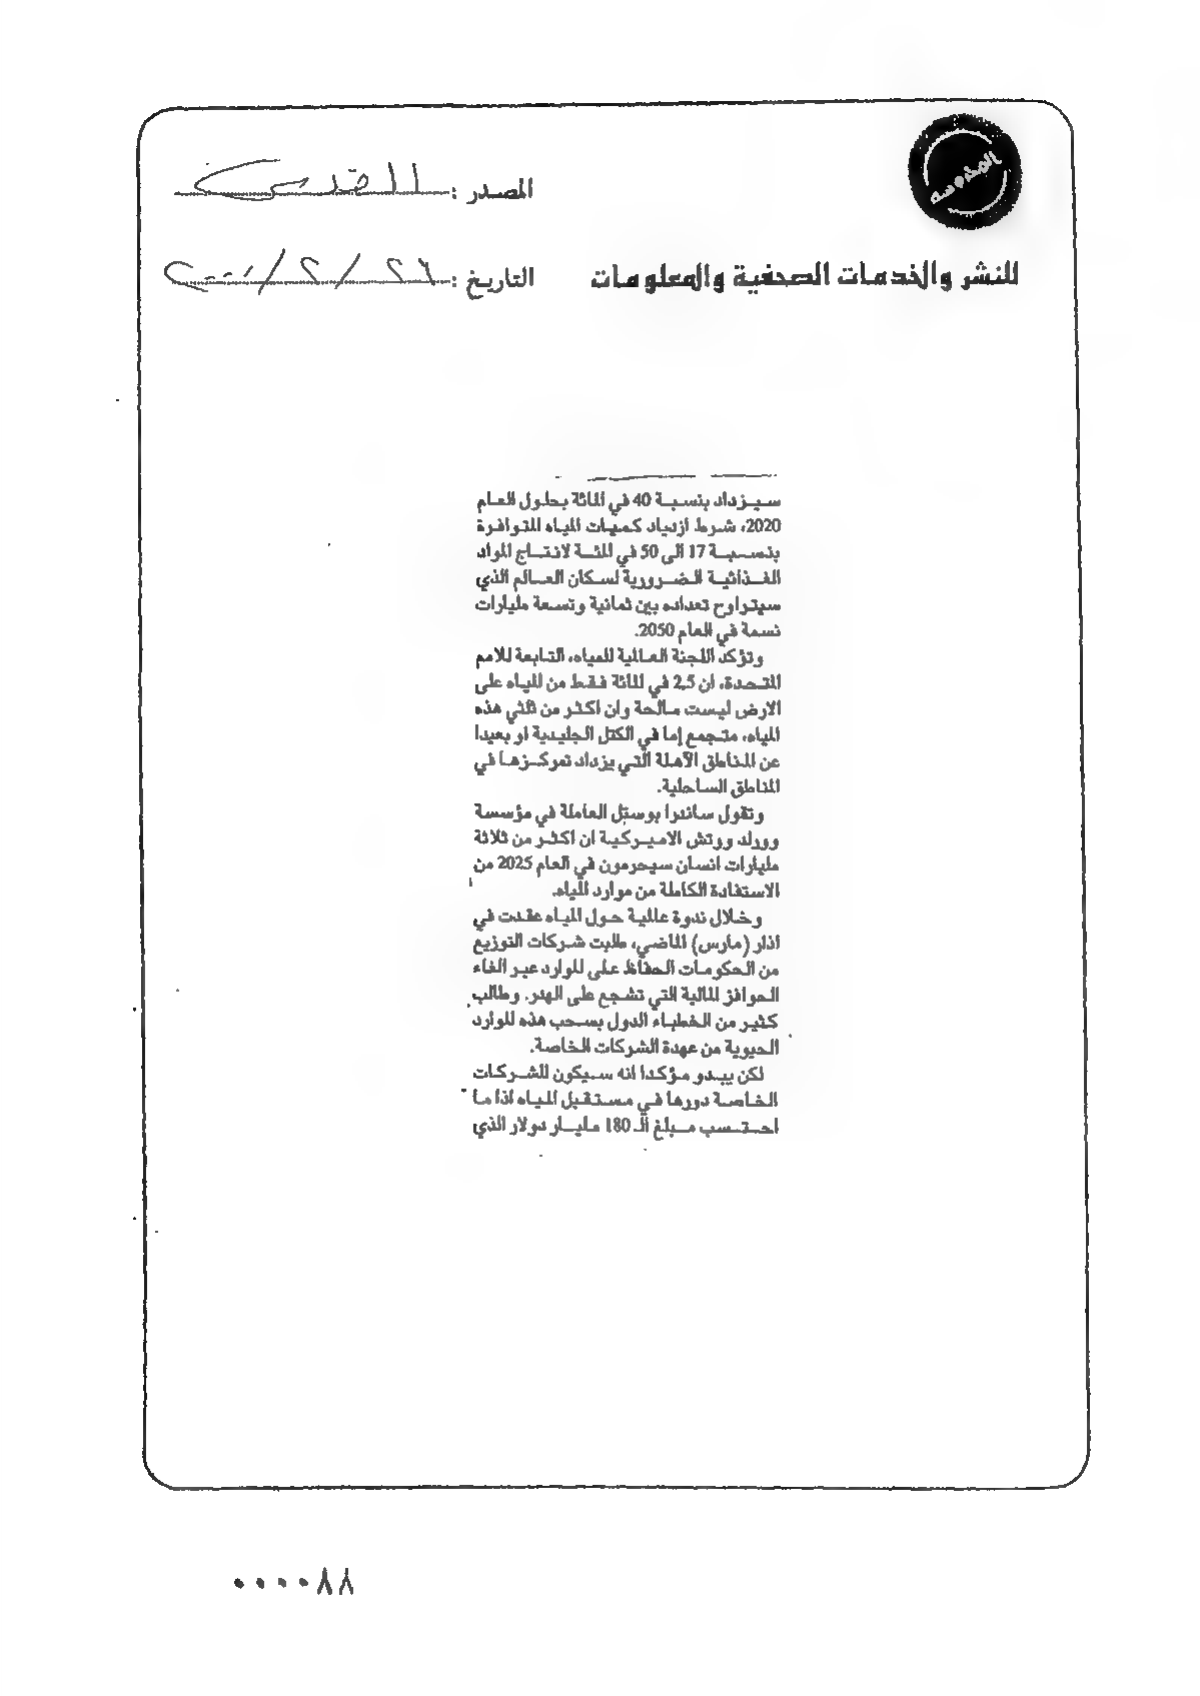 المحروسه
المصدر : القدس
للنشر والخدمات الصحفية والمعلومات
التاريخ : ٢٦ / ٢ / ٢٠٠١
سيزداد بنسبة 40 في المائة بحلول العام
2020، شرط ازدياد كميات المياه المتوافرة
بنسبة 17 الى 50 في المئة لانتاج المواد
الغذائية الضرورية لسكان العالم الذي
سيتراوح تعداده بين ثمانية وتسعة مليارات
نسمة في العام 2050.
وتؤكد اللجنة العالمية للمياه، التابعة للامم
المتحدة، ان 2,5 في المائة فقط من المياه على
الارض ليست مالحة وان اكثر من ثلثي هذه
المياه، متجمع إما في الكتل الجليدية او بعيدا
عن المناطق الآهلة التي يزداد تمركزها في
المناطق الساحلية.
وتقول ساندرا بوستل العاملة في مؤسسة
وورلد ووتش الاميركية ان اكثر من ثلاثة
مليارات انسان سيحرمون في العام 2025 من
الاستفادة الكاملة من موارد المياه.
وخلال ندوة عالمية حول المياه عقدت في
اذار (مارس) الماضي، طلبت شركات التوزيع
من الحكومات الحفاظ على الموارد عبر الغاء
الحوافز المالية التي تشجع على الهدر. وطالب
كثير من الخطباء الدول بسحب هذه الموارد
الحيوية من عهدة الشركات الخاصة.
لكن يبدو مؤكدا انه سيكون للشركات
الخاصة دورها في مستقبل المياه اذا ما
احتسب مبلغ الـ 180 مليار دولار الذي
٠٠٠٠٨٨